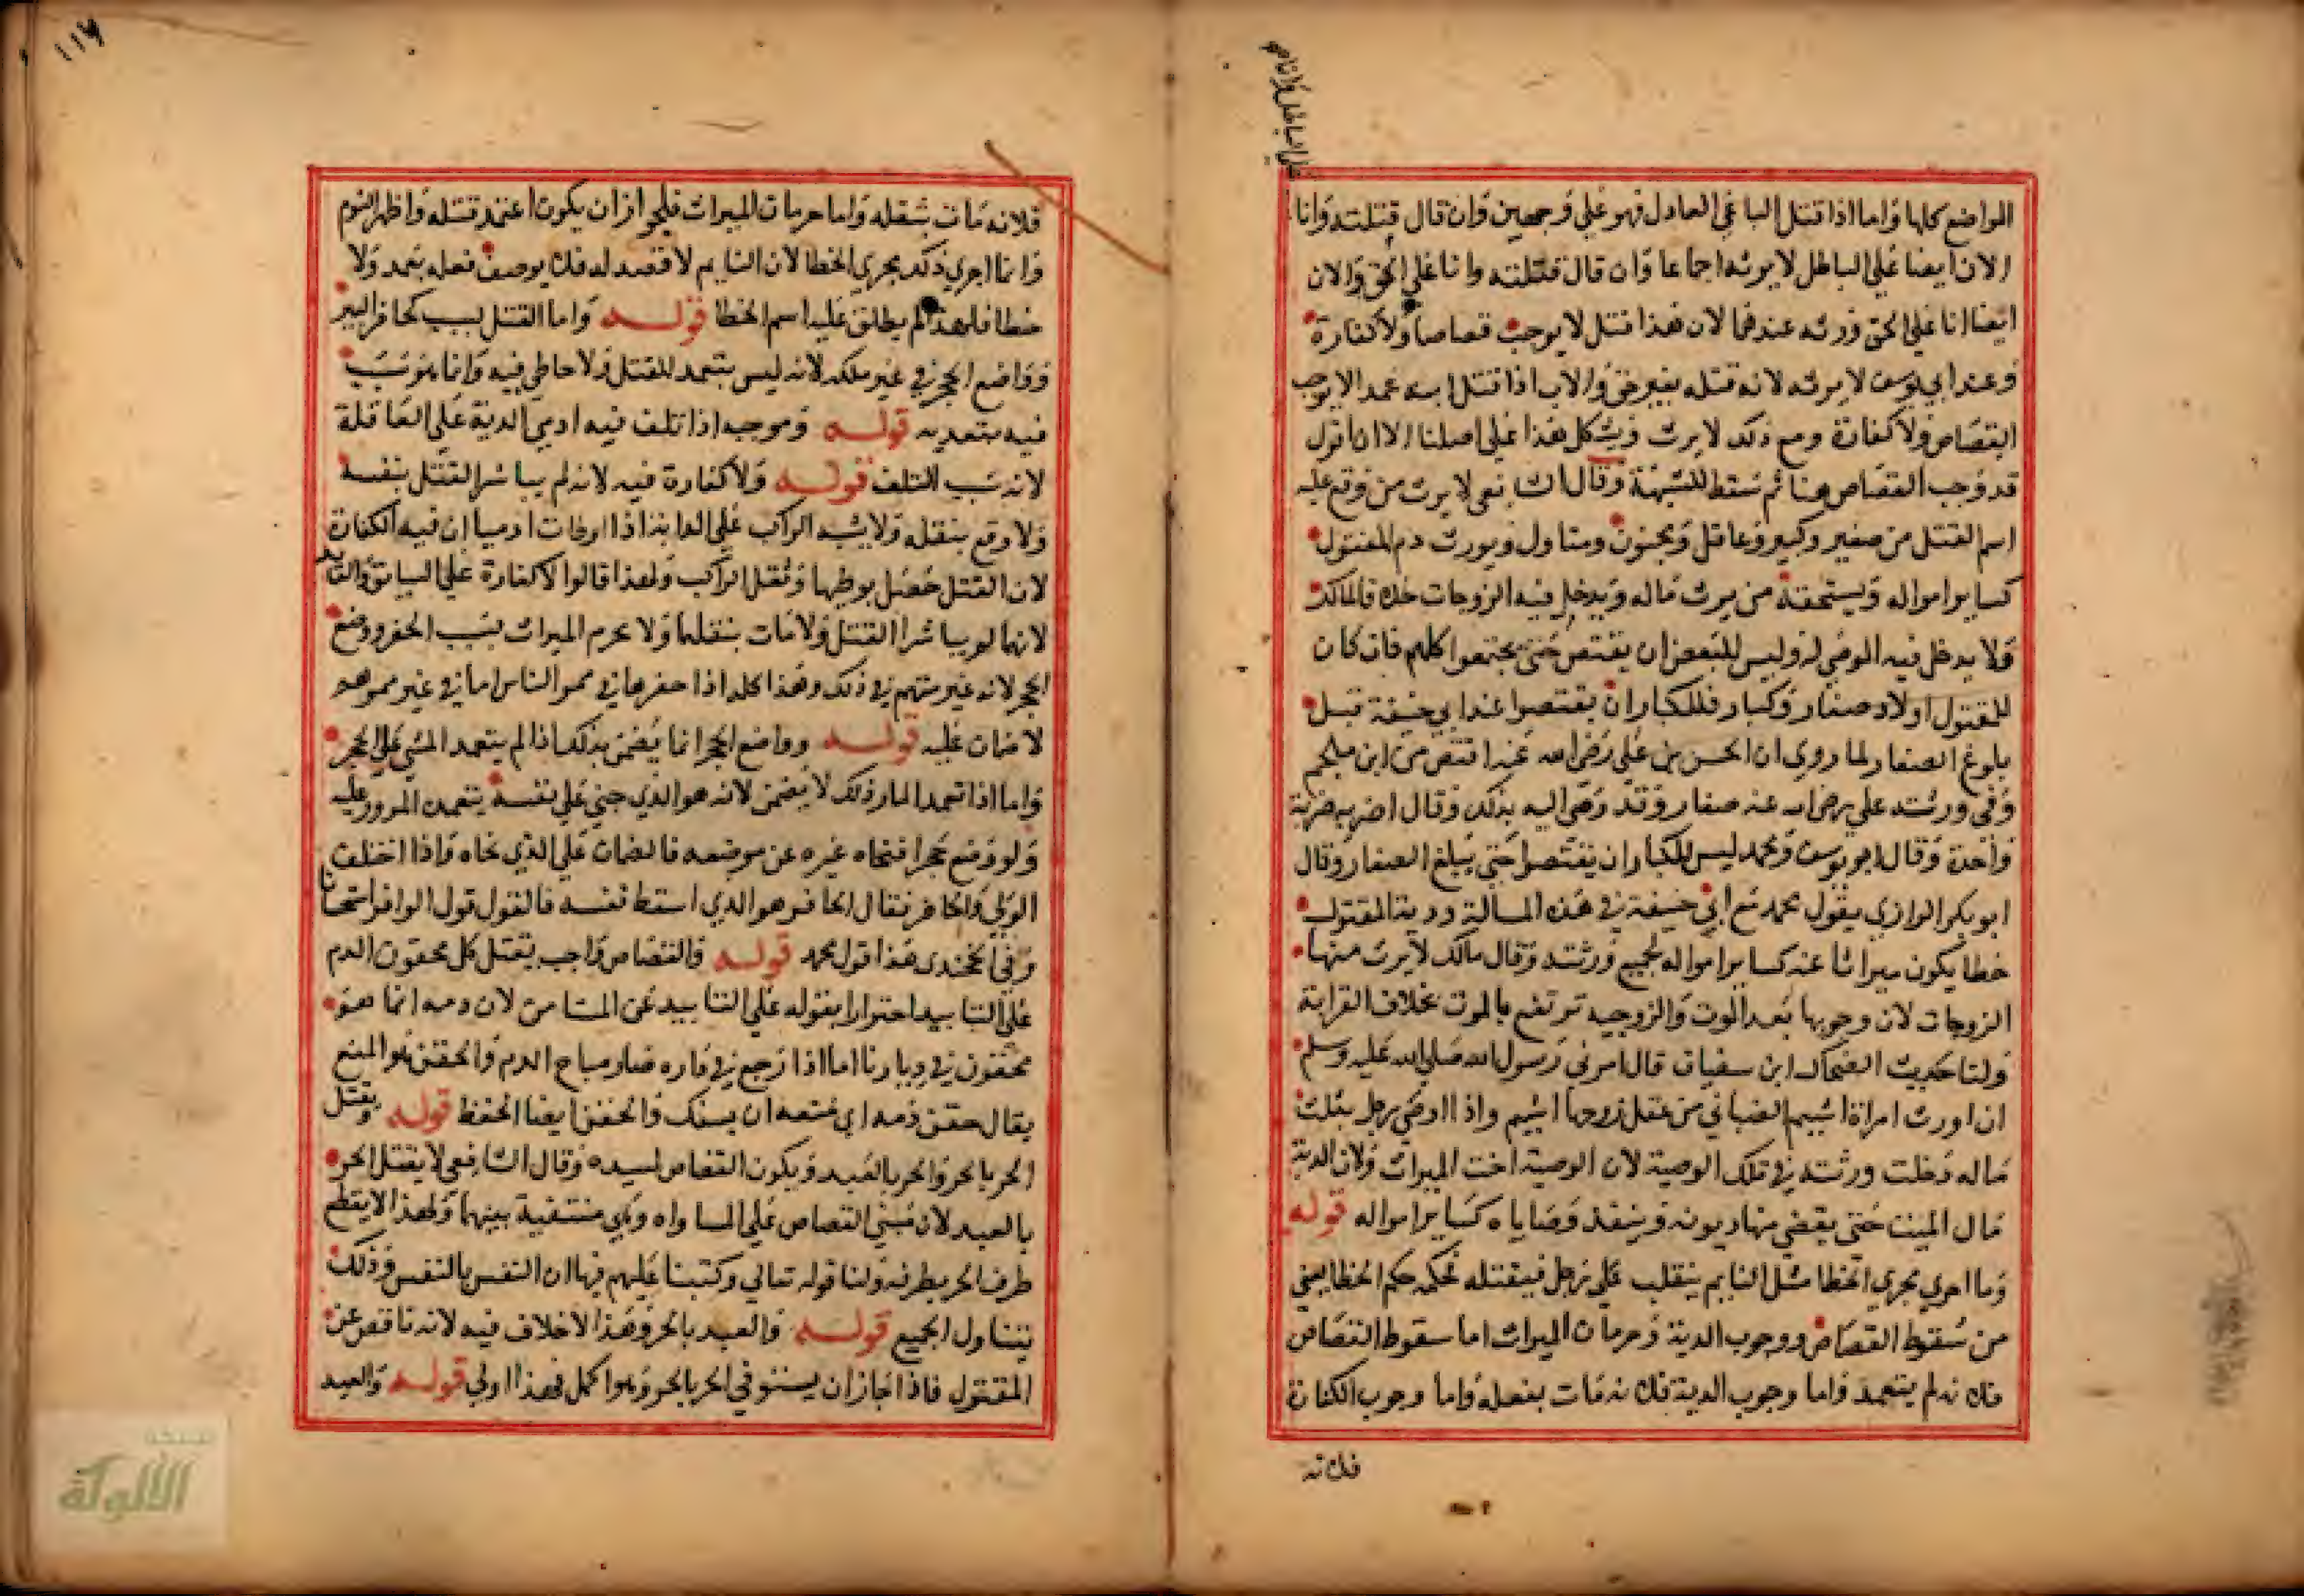 المواضع كلها واما اذا قتل الباغي العادل فهو على وجهين وان قال قتلته وانا
الان ايضا على الباطل لا يرثه اجماعا وان قال قتلته وانا على الحق والان
ايضا انا على الحق ورثه عندهما لان هذا قتل لا يوجب قصاصا ولا كفارة
وعند ابي يوسف لا يرثه لانه قتله بغير حق والاب اذا قتل ابنه عمدا لا يوجب
القصاص ولا كفارة ومع ذلك لا يرث ويشكل هذا على اصلنا الا ان اقول
قد وجب القصاص هنا ثم سقط للشبهة وقال الشافعي لا يرث من وقع عليه
اسم القتل من صغير وكبير وعاقل ومجنون ومتاول ويورث دم المقتول
كساير امواله ويستحقه من يرث ماله ويدخل فيه الزوجات خلافا لمالك
ولا يدخل فيه الموصي له وليس للبعض ان يقتص حتى يجتمعوا كلهم فان كان
للمقتول اولاد صغار وكبار فللكبار ان يقتصوا عند ابي حنيفة قبل
بلوغ الصغار لما روي ان الحسن بن علي رضي الله عنه اقتص من ابن ملجم
وفي ورثته علي رضي الله عنه صغار وقد وصى اليه بذلك وقال اضربه ضربة
واحدة وقال ابو يوسف ومحمد ليس للكبار ان يقتصوا حتى يبلغ الصغار وقال
ابو بكر الرازي يقول محمد مع ابي حنيفة في هذه المسالة ودية المقتول
خطا يكون ميراثا عنه كساير امواله لجميع ورثته وقال مالك لا يرث منها
الزوجات لان وجوبها بعد الموت والزوجيه ترتفع بالموت بخلاف القرابة
ولنا حديث الضحاك ابن سفيان قال امرني رسول الله صلى الله عليه وسلم
ان اورث امراة اشيم الضبابي من عقل زوجها اشيم واذا اوصى رجل بثلث
ماله دخلت ورثته في تلك الوصية لان الوصية اخت الميراث ولان الدية
مال الميت حتى يقضي منها ديونه وينفذ وصاياه كساير امواله قوله
وما اجري مجري الخطا مثل النايم ينقلب على رجل فيقتله فحكمه حكم الخطا يعني
من سقوط القصاص ووجوب الدية وحرمان الميراث اما سقوط القصاص
فلانه لم يتعمد واما وجوب الدية فلانه مات بفعله واما وجوب الكفارة
فلانه
١١٧
فلانه مات بثقله واما حرمان الميراث فلجواز ان يكون اعتمد قتله واظهر النوم
وانما اجري ذلك مجري الخطا لان النايم لا قصد له فلا يوصف فعله بعمد ولا
خطا فلهذا لم يطلق عليه اسم الخطا قوله واما القتل بسبب كحافر البير
وواضع الحجر في غير ملكه لانه ليس بتعمد للقتل ولا خاطي فيه وانما هو سبب
فيه بتعديه قوله وموجبه اذا تلف فيه ادمي الدية على العاقلة
لانه سبب التلف قوله ولا كفارة فيه لانه لم يباشر القتل بنفسه
ولا وقع بثقله ولا يشبه الراكب على الدابة اذا اوطات ادميا ان فيه الكفارة
لان القتل حصل بوطيها وثقل الراكب ولهذا قالوا لا كفارة على السايق والقايد
لانهما لم يباشرا القتل ولا مات بثقلهما ولا يحرم الميراث بسبب الحفر ووضع
الحجر لانه غير متهم في ذلك وهذا كله اذا حفرها في ممر الناس اما في غير ممرهم
لا ضمان عليه قوله وواضع الحجر انما يضمن بذلك اذا لم يتعمد المشي على الحجر
واما اذا تعمد المار ذلك لا يضمن لانه هو الذي جني على نفسه بتعمده المرور عليه
ولو وضع حجرا فنحاه غيره عن موضعه فالضمان على الذي نحاه واذا اختلف
الولي والحافر فقال الحافر هو الذي اسقط نفسه فالقول قول الحافر استحسانا
وفي الخجندي هذا قول محمد قوله والقصاص واجب بقتل كل محقون الدم
على التابيد احترازا بقوله على التابيد عن المستامن لان دمه انما هو
محقون في ديارنا اما اذا رجع في داره صار مباح الدم والحقن هو المنع
يقال حقن دمه اي منعه ان يسفك والحقن ايضا الحفظ قوله ويقتل
الحر بالحر والحر بالعبد ويكون القصاص لسيده وقال الشافعي لا يقتل الحر
بالعبد لان مبنى القصاص على المساواه وهي منتفية بينهما ولهذا لا يقطع
طرف الحر بطرفه ولنا قوله تعالي وكتبنا عليهم فيها ان النفس بالنفس وذلك
يتناول الجميع قوله والعبد بالحر وهذا لا خلاف فيه لانه ناقص عن
المقتول فاذا جاز ان يستوفي الحر بالحر وهو اكمل فهذا اولي قوله والعبد
شبكة
الألوكة